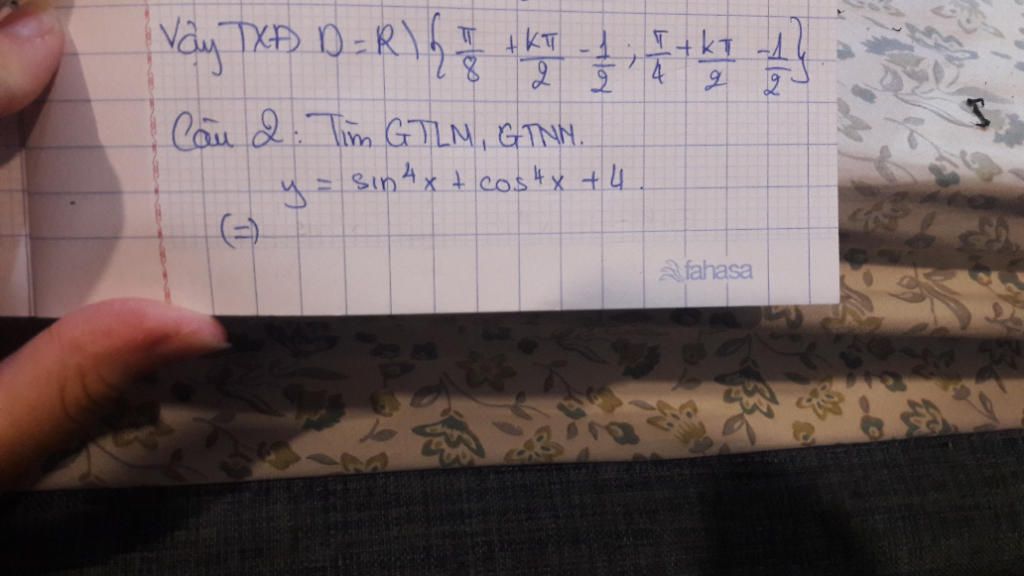 Vậy TXĐ D = R \ { π/8 + kπ/2 - 1/2 ; π/4 + kπ/2 - 1/2 }
Câu 2: Tìm GTLN, GTNN.
y = sin⁴x + cos⁴x + 4.
(=)
fahasa